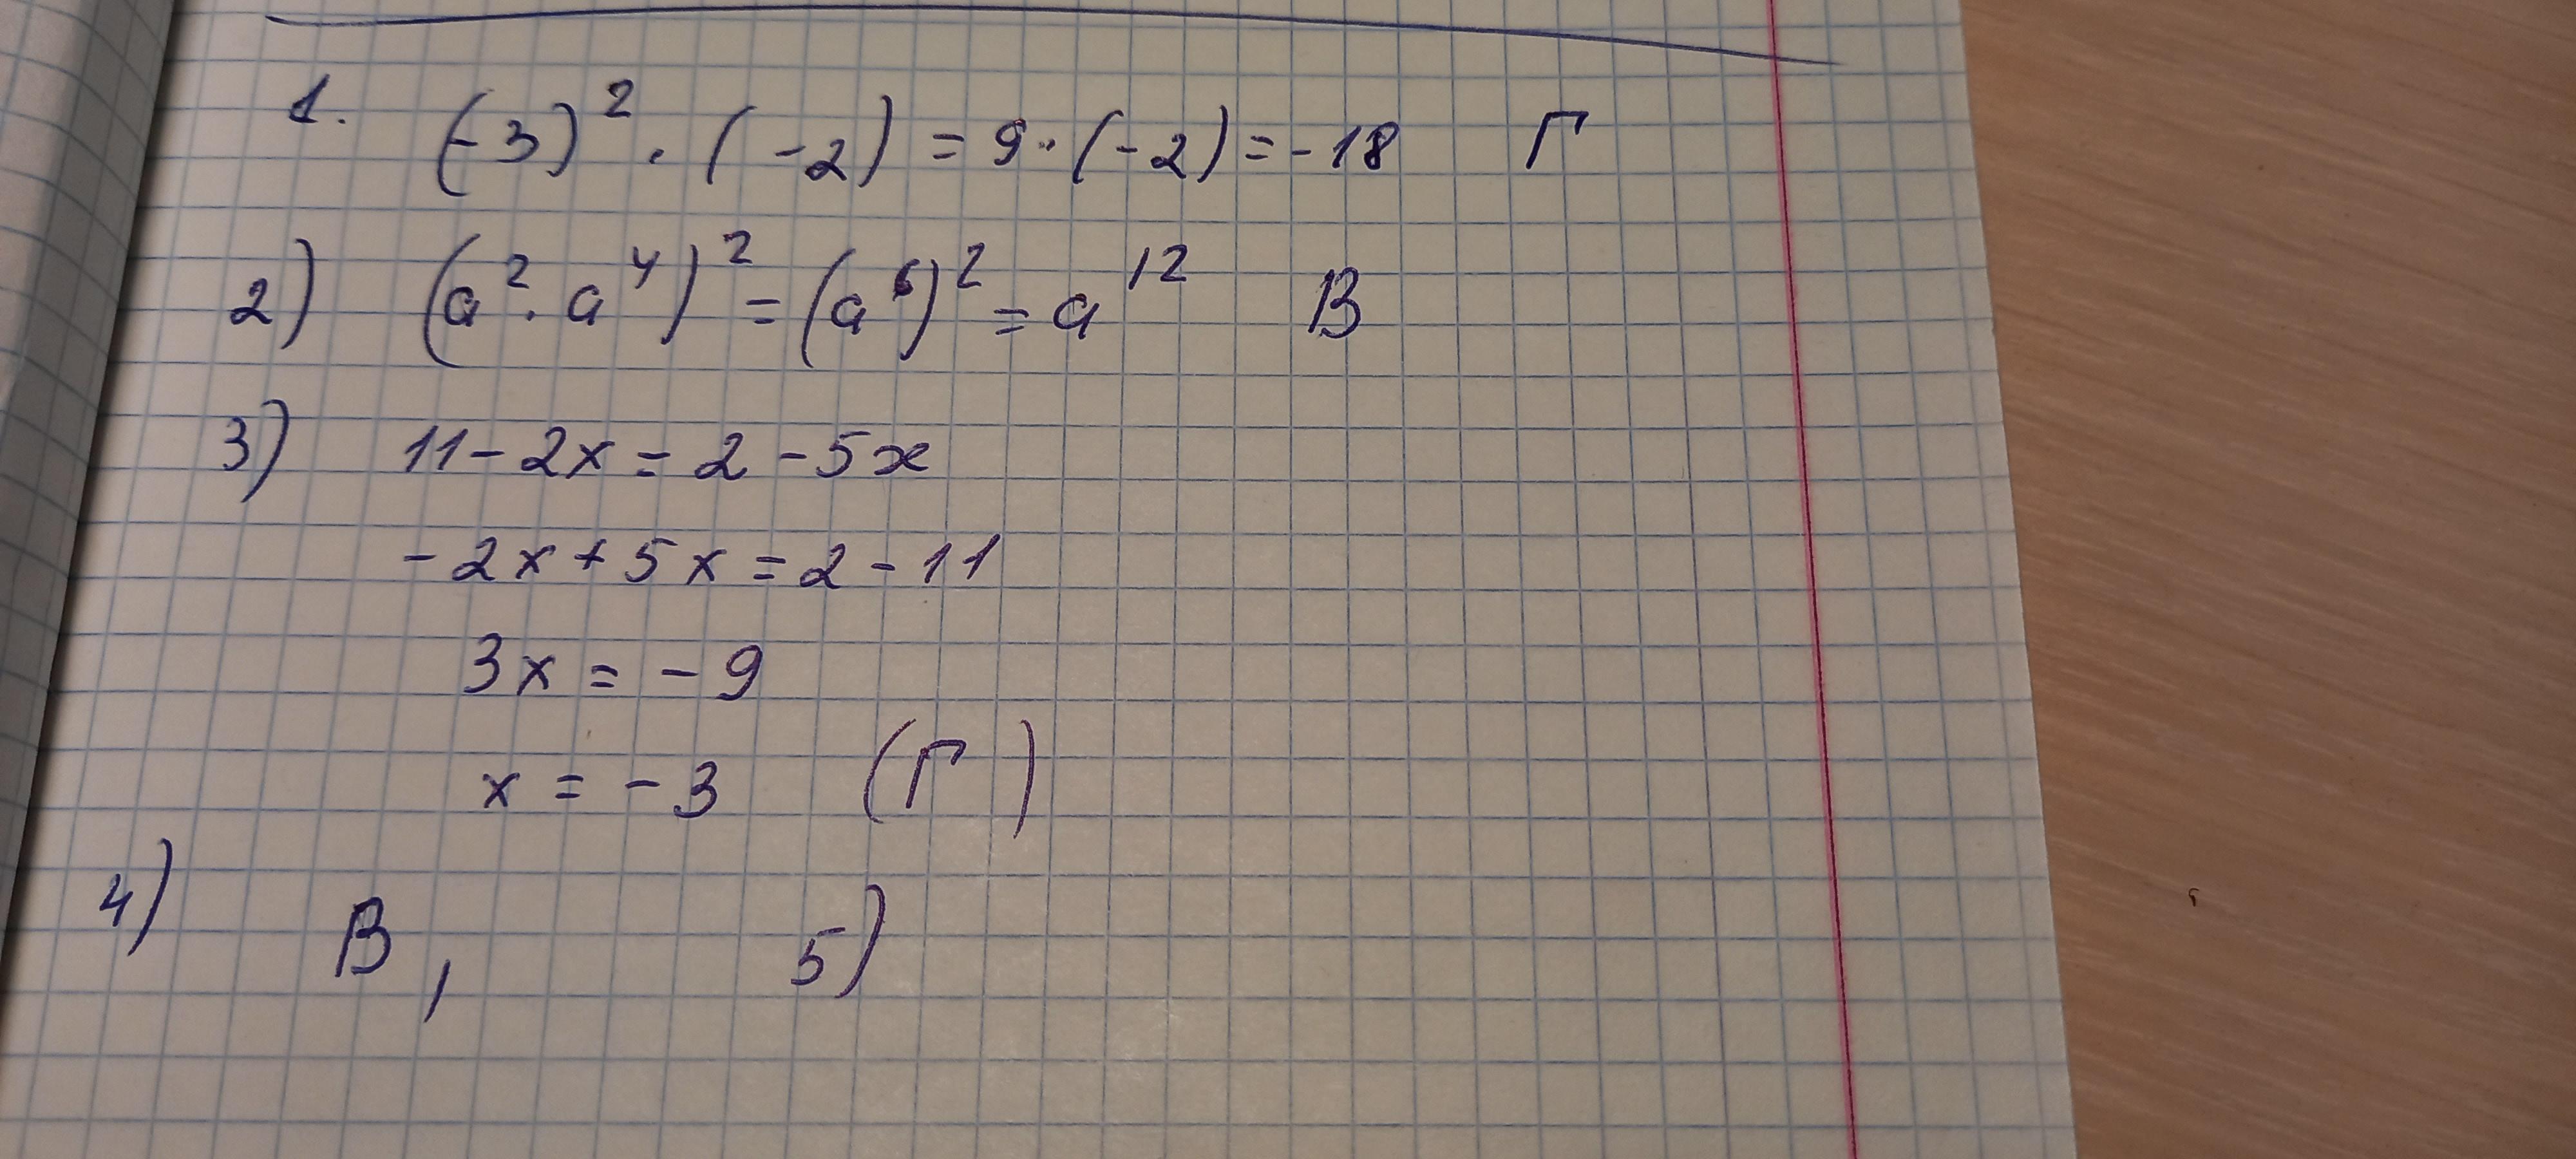 1. (-3)² · (-2) = 9 · (-2) = -18 Г
2) (a² · a⁴)² = (a⁶)² = a¹² В
3) 11 - 2x = 2 - 5x
-2x + 5x = 2 - 11
3x = -9
x = -3 (Г)
4) В, 5)